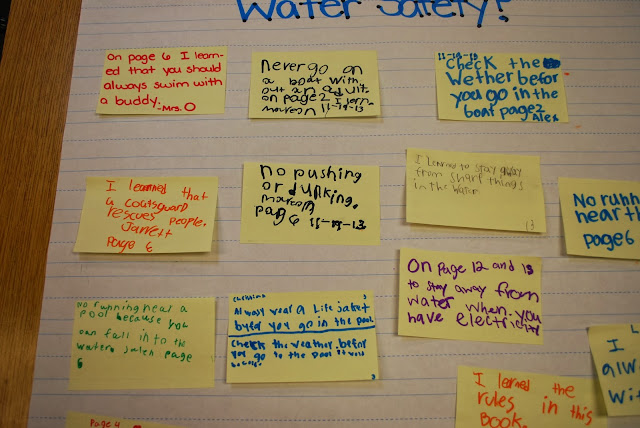 Water Safety!
on page 6 I learn-
ed that you should
always swim with
a buddy.
-Mrs. O
never go on
a boat with
out an adult.
on page 2 I lern
11-19-13
11-19-13
Check the
Wether befor
you go in the
boat page 2
Alex
I learned that
a coatsguard
rescues people.
Jarrett
Page 6
no pushing
or dunking.
pag 6 11-19-13
I learned to stay away
from sharp things
in the water
13
No runn
near th
page 6
No running near a
pool because you
can fall in to the
water Jalen page
6
Always wear a Life jaket
befor you go in the pool
Check the weather befor
you go to the pool
On page 12 and 13
to stay away from
water when you
have electricity
I learned the
rules in this
Book.
I
alwa
wit
Page 4